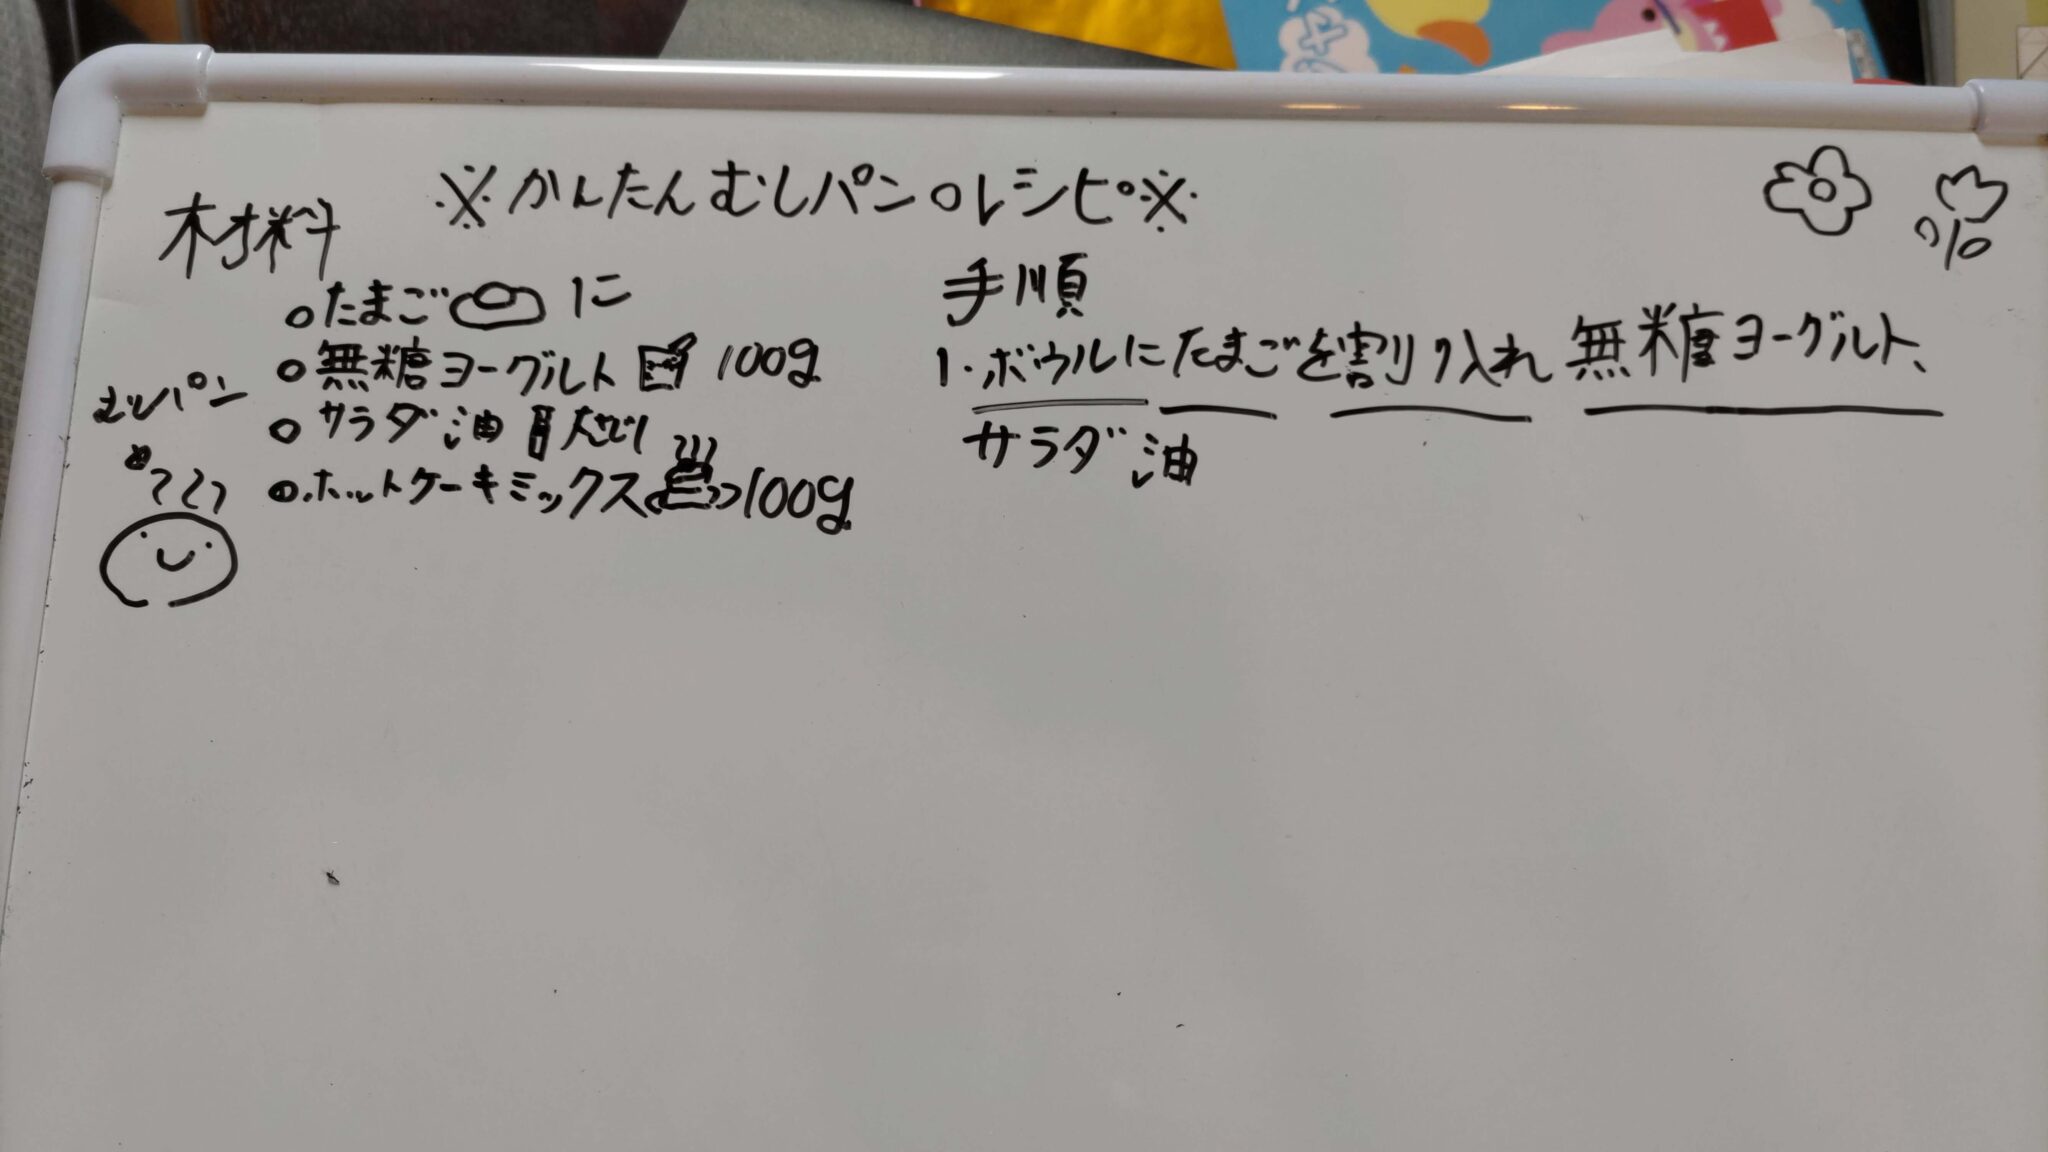 ※かんたんむしパン○レシピ○※
材料
○たまご 1こ
○無糖ヨーグルト 100g
○サラダ油 大さじ1
○ホットケーキミックス 100g
むしパン
手順
1.ボウルにたまごを割り入れ無糖ヨーグルト、
サラダ油